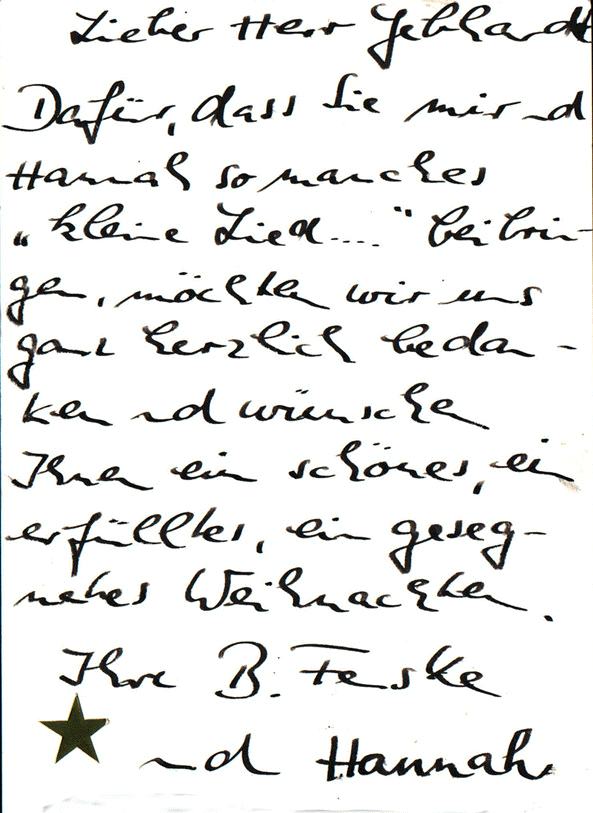 Lieber Herr Gebhardt
Dafür, dass Sie mir und
Hannah so manches
„kleine Lied...." beibrin-
gen, möchten wir uns
ganz herzlich bedan-
ken und wünschen
Ihnen ein schönes, ein
erfülltes, ein geseg-
netes Weihnachten.
Ihre B. Feske
und Hannah